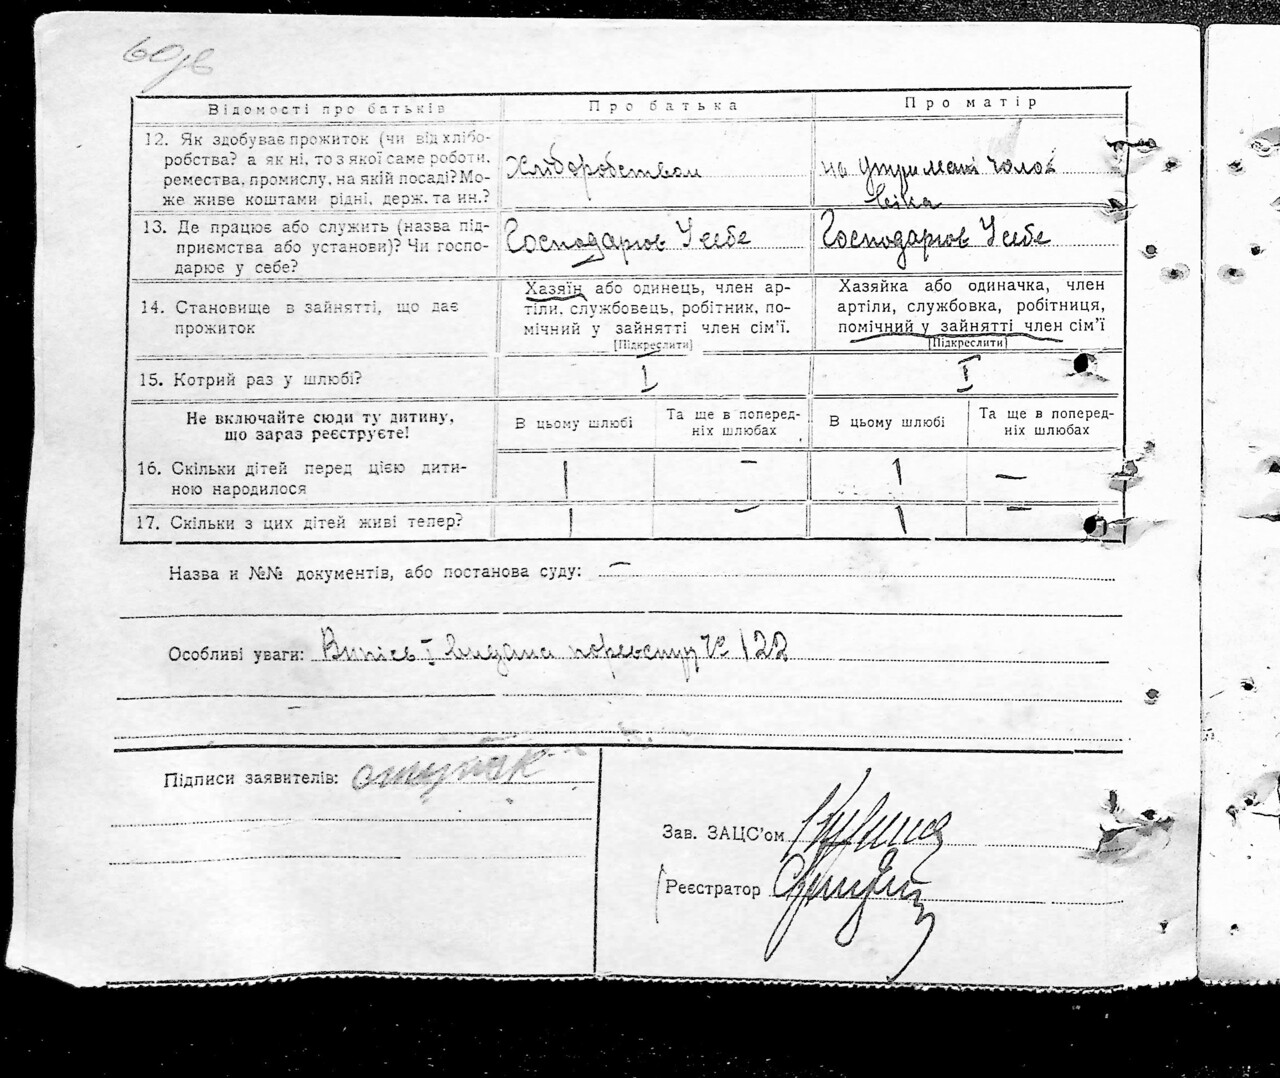 60зв
Відомості про батьків
Про батька
Про матір
12. Як здобуває прожиток (чи від хлібо-
робства? а як ні, то з якої саме роботи,
ремества, промислу, на якій посаді? Мо-
же живе коштами рідні, держ. та ин.?
Хліборобством
на утримані чоло
віка
13. Де працює або служить (назва під-
приємства або установи)? Чи госпо-
дарює у себе?
Господарює У себе
Господарює У себе
14. Становище в зайнятті, що дає
прожиток
Хазяїн або одинець, член ар-
тіли, службовець, робітник, по-
мічний у зайнятті член сім'ї.
[Підкреслити]
Хазяйка або одиначка, член
артіли, службовка, робітниця,
помічний у зайнятті член сім'ї
[Підкреслити]
15. Котрий раз у шлюбі?
I
I
Не включайте сюди ту дитину,
що зараз реєструєте!
В цьому шлюбі
Та ще в поперед-
ніх шлюбах
В цьому шлюбі
Та ще в поперед-
ніх шлюбах
16. Скільки дітей перед цією дити-
ною народилося
1
—
1
—
17. Скільки з цих дітей живі тепер?
1
—
1
—
Назва и №№ документів, або постанова суду: —
Особливі уваги: Випись видана № 122
Підписи заявителів:
Зав. ЗАЦС'ом
Реєстратор